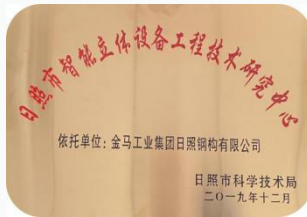 日照市智能立体设备工程技术研究中心
依托单位：金马工业集团日照钢构有限公司
日照市科学技术局
二〇一九年十二月